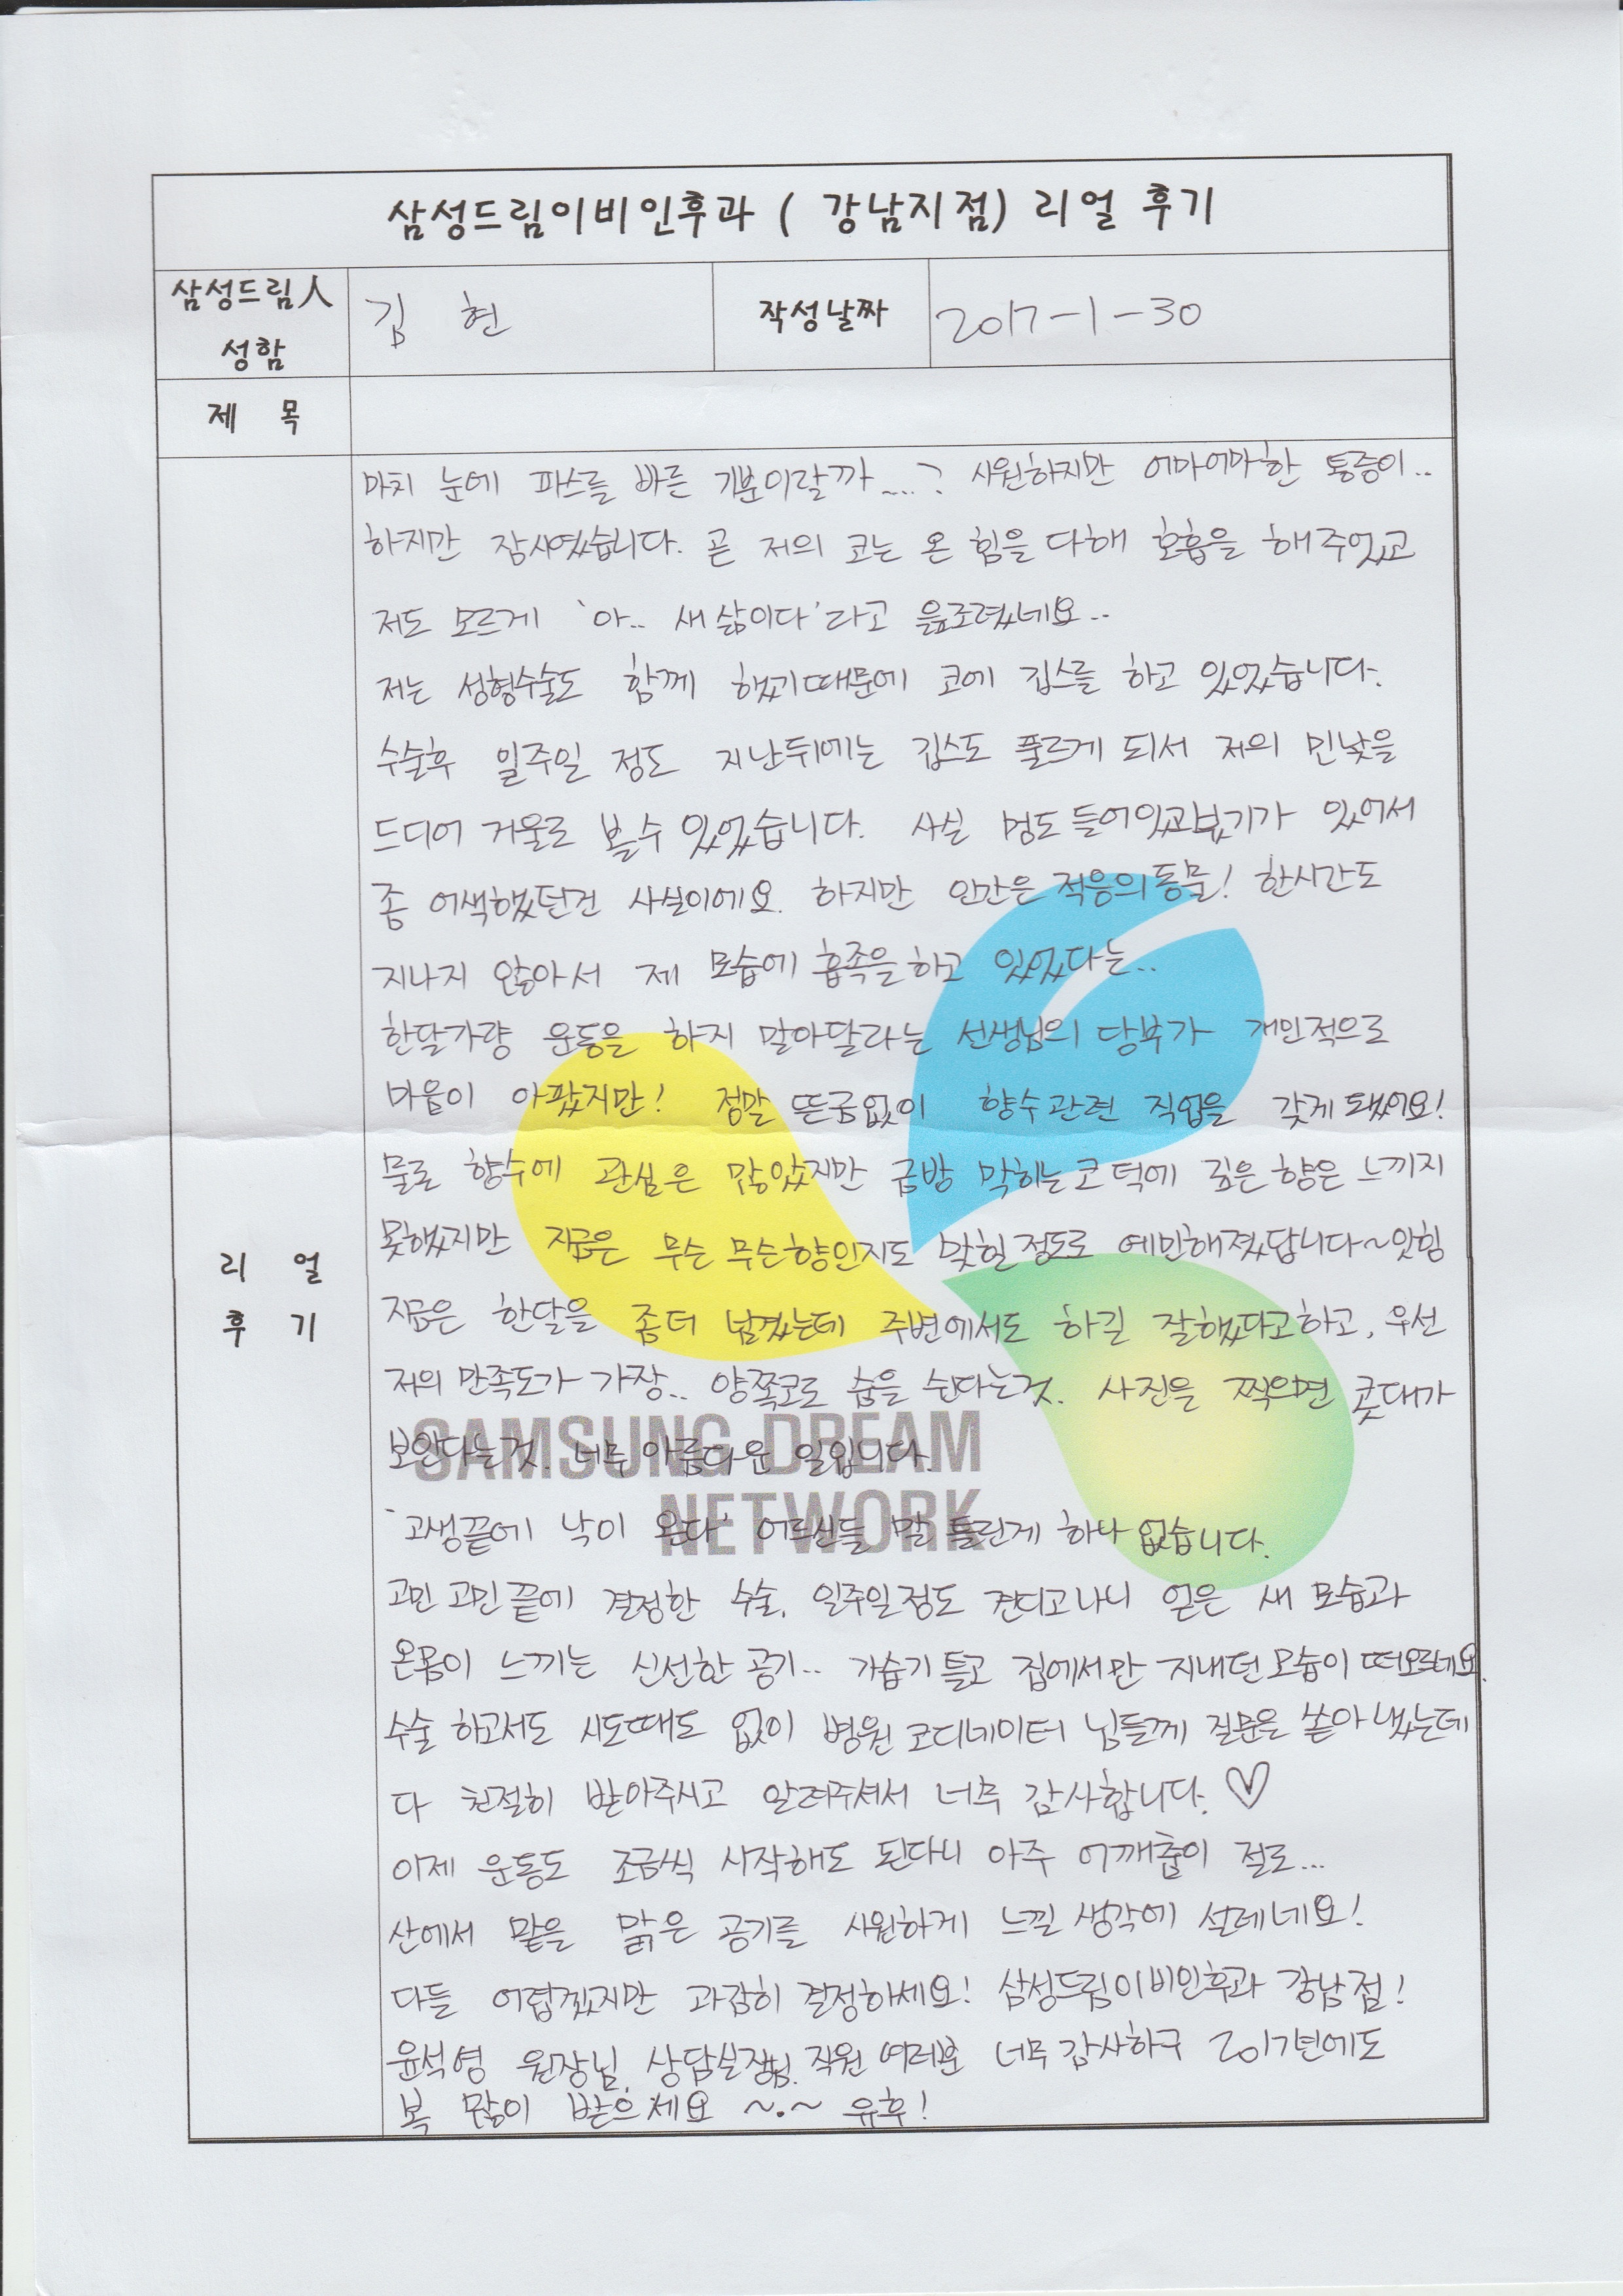 삼성드림이비인후과 ( 강남지점) 리얼 후기
삼성드림人 성함
김 현
작성날짜
2017-1-30
제 목
리 얼 후 기
마치 눈에 파스를 바른 기분이랄까....? 시원하지만 어마어마한 통증이..
하지만 잠시였습니다. 곧 저의 코는 온 힘을 다해 호흡을 해주었고
저도 모르게 '아.. 새 삶이다'라고 읊조렸네요..
저는 성형수술도 함께 했기때문에 코에 깁스를 하고 있었습니다.
수술후 일주일 정도 지난뒤에는 깁스도 풀르게 되서 저의 민낯을
드디어 거울로 볼수 있었습니다. 사실 멍도 들어있고 붓기가 있어서
좀 어색했던건 사실이에요. 하지만 인간은 적응의 동물! 한시간도
지나지 않아서 제 모습에 흡족을 하고 있었다는..
한달가량 운동을 하지 말아달라는 선생님의 당부가 개인적으로
마음이 아팠지만! 정말 뜬금없이 향수관련 직업을 갖게 됐어요!
물로 향수에 관심은 많았지만 금방 막히는 코 덕에 깊은 향은 느끼지
못했지만 지금은 무슨 무슨향인지도 맞힐 정도로 예민해졌답니다~잇힝
지금은 한달을 좀더 넘겼는데 주변에서도 하길 잘했다고하고, 우선
저의 만족도가 가장.. 양쪽코로 숨을 쉰다는것. 사진을 찍으면 콧대가
보인다는것. 너무 아름다운 일입니다.
SAMSUNG DREAM
NETWORK
'고생끝에 낙이 온다' 어르신들 말 틀린게 하나 없습니다.
고민 고민 끝에 결정한 수술. 일주일정도 견디고나니 얻은 새 모습과
온몸이 느끼는 신선한 공기.. 가습기 틀고 집에서만 지내던 모습이 떠오르네요.
수술 하고서도 시도때도 없이 병원 코디네이터 님들께 질문을 쏟아 냈는데
다 친절히 받아주시고 알려주셔서 너무 감사합니다. ♡
이제 운동도 조금씩 시작해도 된다니 아주 어깨춤이 절로...
산에서 맡을 맑은 공기를 시원하게 느낄 생각에 설레네요!
다들 어렵겠지만 과감히 결정하세요! 삼성드림이비인후과 강남점!
윤석영 원장님, 상담실장님, 직원 여러분 너무 감사하구 2017년에도
복 많이 받으세요 ~.~ 유후!